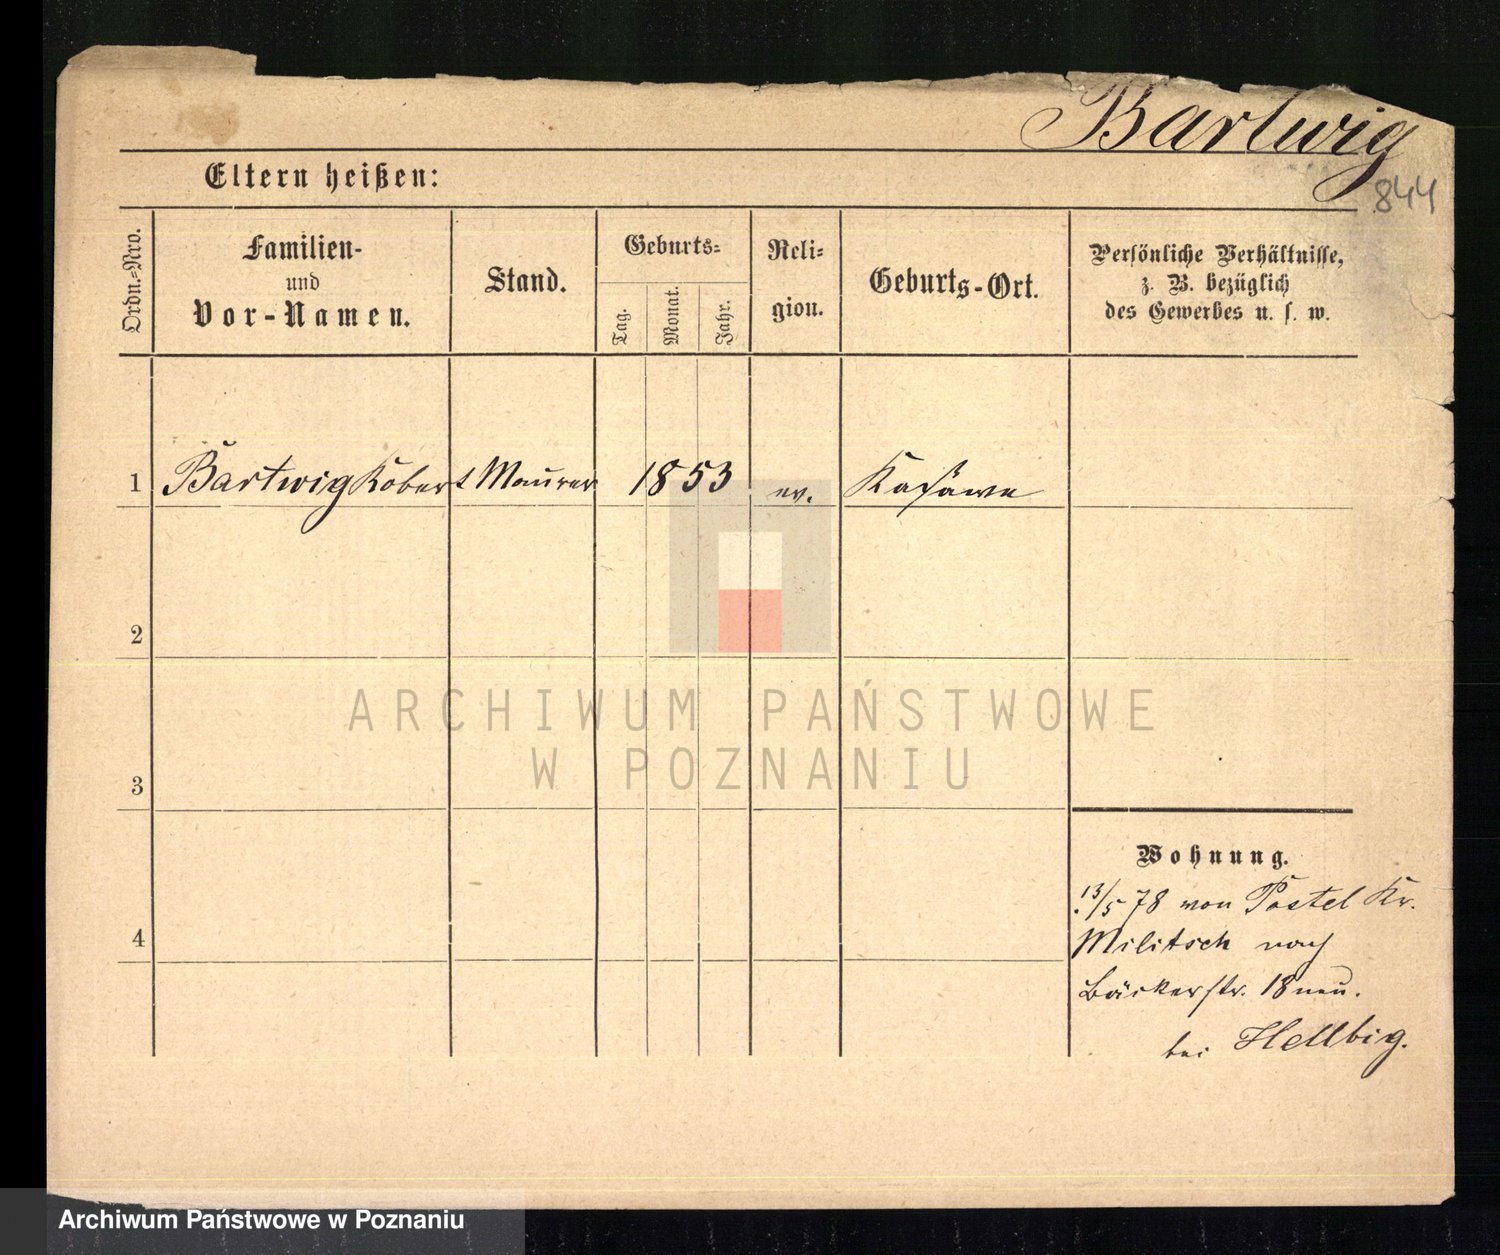 Bartwig
844
Eltern heißen:
Ordn.=Nro.
Familien-
und
Vor-Namen.
Stand.
Geburts=
Tag.
Monat.
Jahr.
Reli=
gion.
Geburts-Ort.
Persönliche Verhältnisse,
z. B. bezüglich
des Gewerbes u. s. w.
1 Bartwig Robert Maurer 1853 ev. Kaschäwe
2
3
4
Wohnung.
13/5 78 von Postel Kr.
Militsch nach
Bäckerstr. 18 neu.
bei Hellbig.
ARCHIWUM PAŃSTWOWE
W POZNANIU
Archiwum Państwowe w Poznaniu